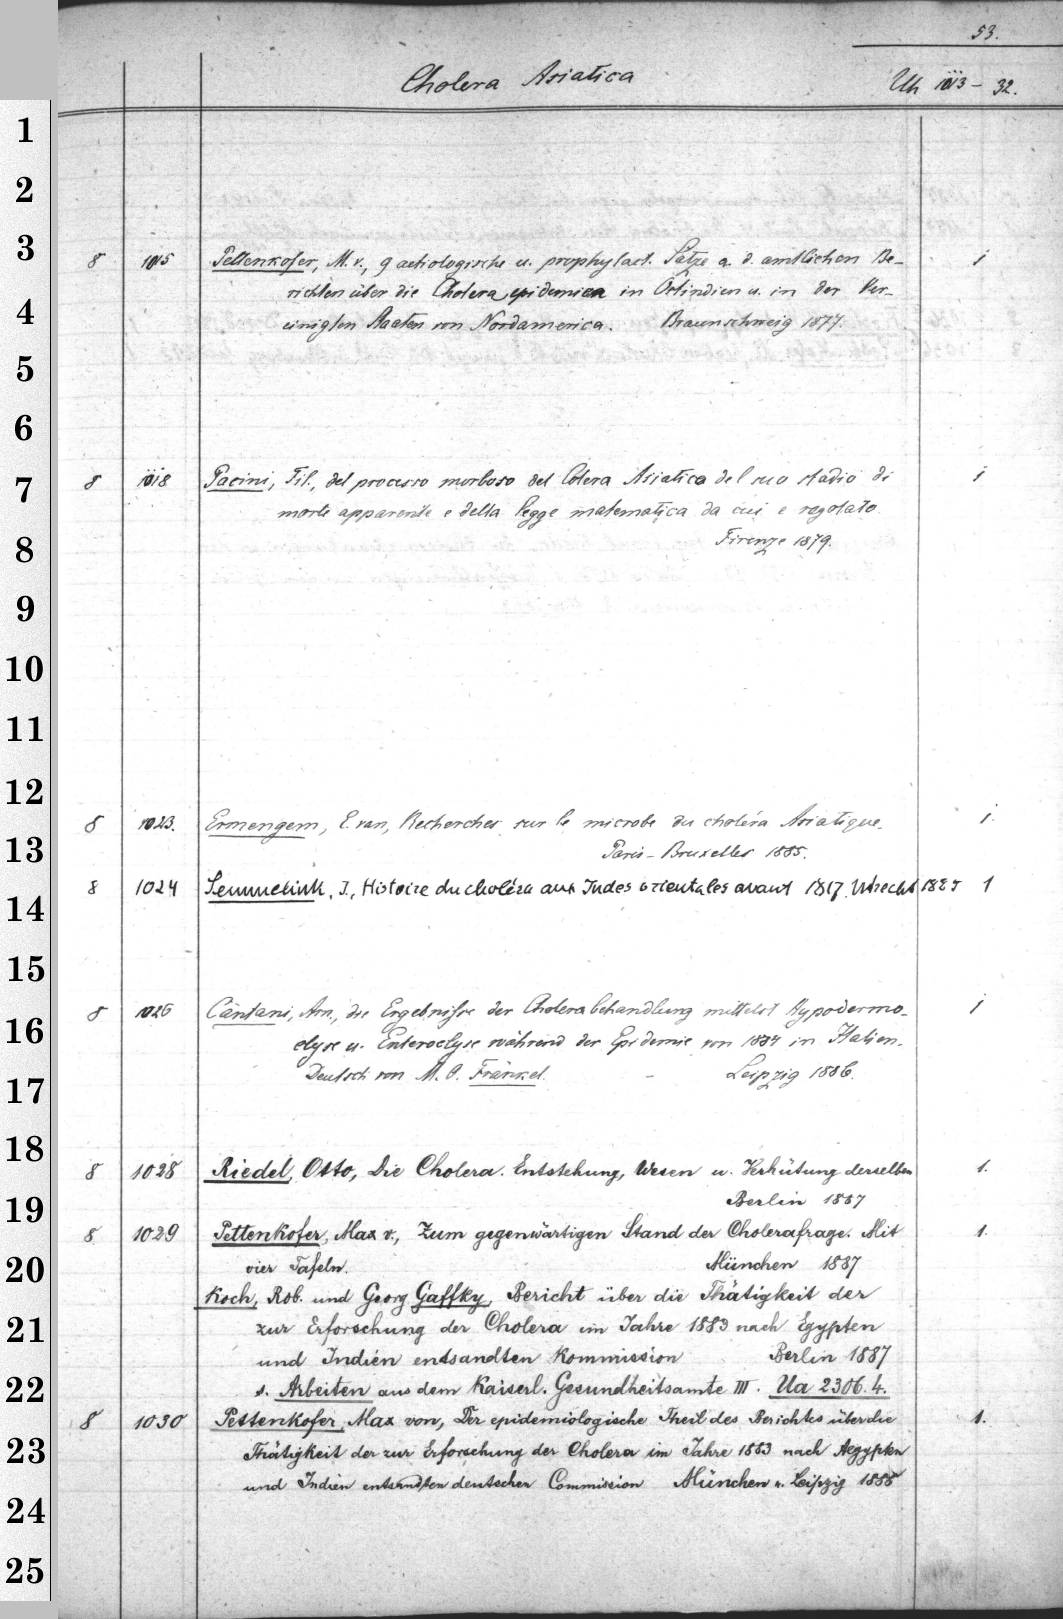 53.
Cholera Asiatica Uh 1013 - 32.
1
2
3
4
5
6
7
8
9
10
11
12
13
14
15
16
17
18
19
20
21
22
23
24
25
8 1015 Pettenkofer, M. v., 9 aetiologische u. prophylact. Sätze a. d. amtlichen Be- 1
richten über die Cholera epidemica in Ostindien u. in der Ver-
einigten Staaten von Nordamerica. Braunschweig 1877.
8 1018 Pacini, Fil., del processo morboso del Colera Asiatica del suo stadio di 1
morte apparente e della legge matematica da cui e regolato
Firenze 1879.
8 1023. Ermengem, E. van, Recherches sur le microbe du choléra Asiatique. 1.
Paris - Bruxelles 1885.
8 1024 Semmelink, J., Histoire du choléra aux Indes orientales avant 1817. Utrecht 1885 1
8 1026 Cantani, Arn., die Ergebnisse der Cholerabehandlung mittelst Hypodermo- 1
clyse u. Enteroclyse während der Epidemie von 1884 in Italien.
Deutsch von M. O. Fränkel. - Leipzig 1886.
8 1028 Riedel, Otto, Die Cholera. Entstehung, Wesen u. Verhütung derselben 1.
Berlin 1887
8 1029 Pettenkofer, Max v., Zum gegenwärtigen Stand der Cholerafrage. Mit 1.
vier Tafeln. München 1887
Koch, Rob. und Georg Gaffky, Bericht über die Thätigkeit der
zur Erforschung der Cholera im Jahre 1883 nach Egypten
und Indien entsandten Kommission Berlin 1887
s. Arbeiten aus dem Kaiserl. Gesundheitsamte III. Ua 2306. 4.
8 1030 Pettenkofer, Max von, Der epidemiologische Theil des Berichtes über die 1.
Thätigkeit der zur Erforschung der Cholera im Jahre 1883 nach Aegypten
und Indien entsandten deutscher Commission München u. Leipzig 1888